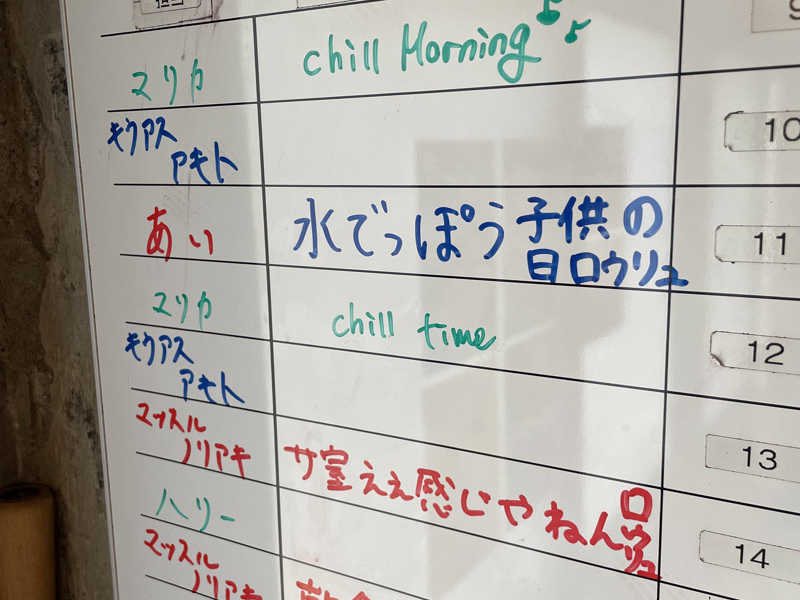 担当
9
マリカ chill Morning♪♪
10
キクアス
アキト
あい 水でっぽう 子供の
日ロウリュ
11
マリカ chill time
12
キクアス
アキト
マッスル
ノリアキ サ室ええ感じやねんロウリュ
13
ハリー
14
マッスル
ノリアキ